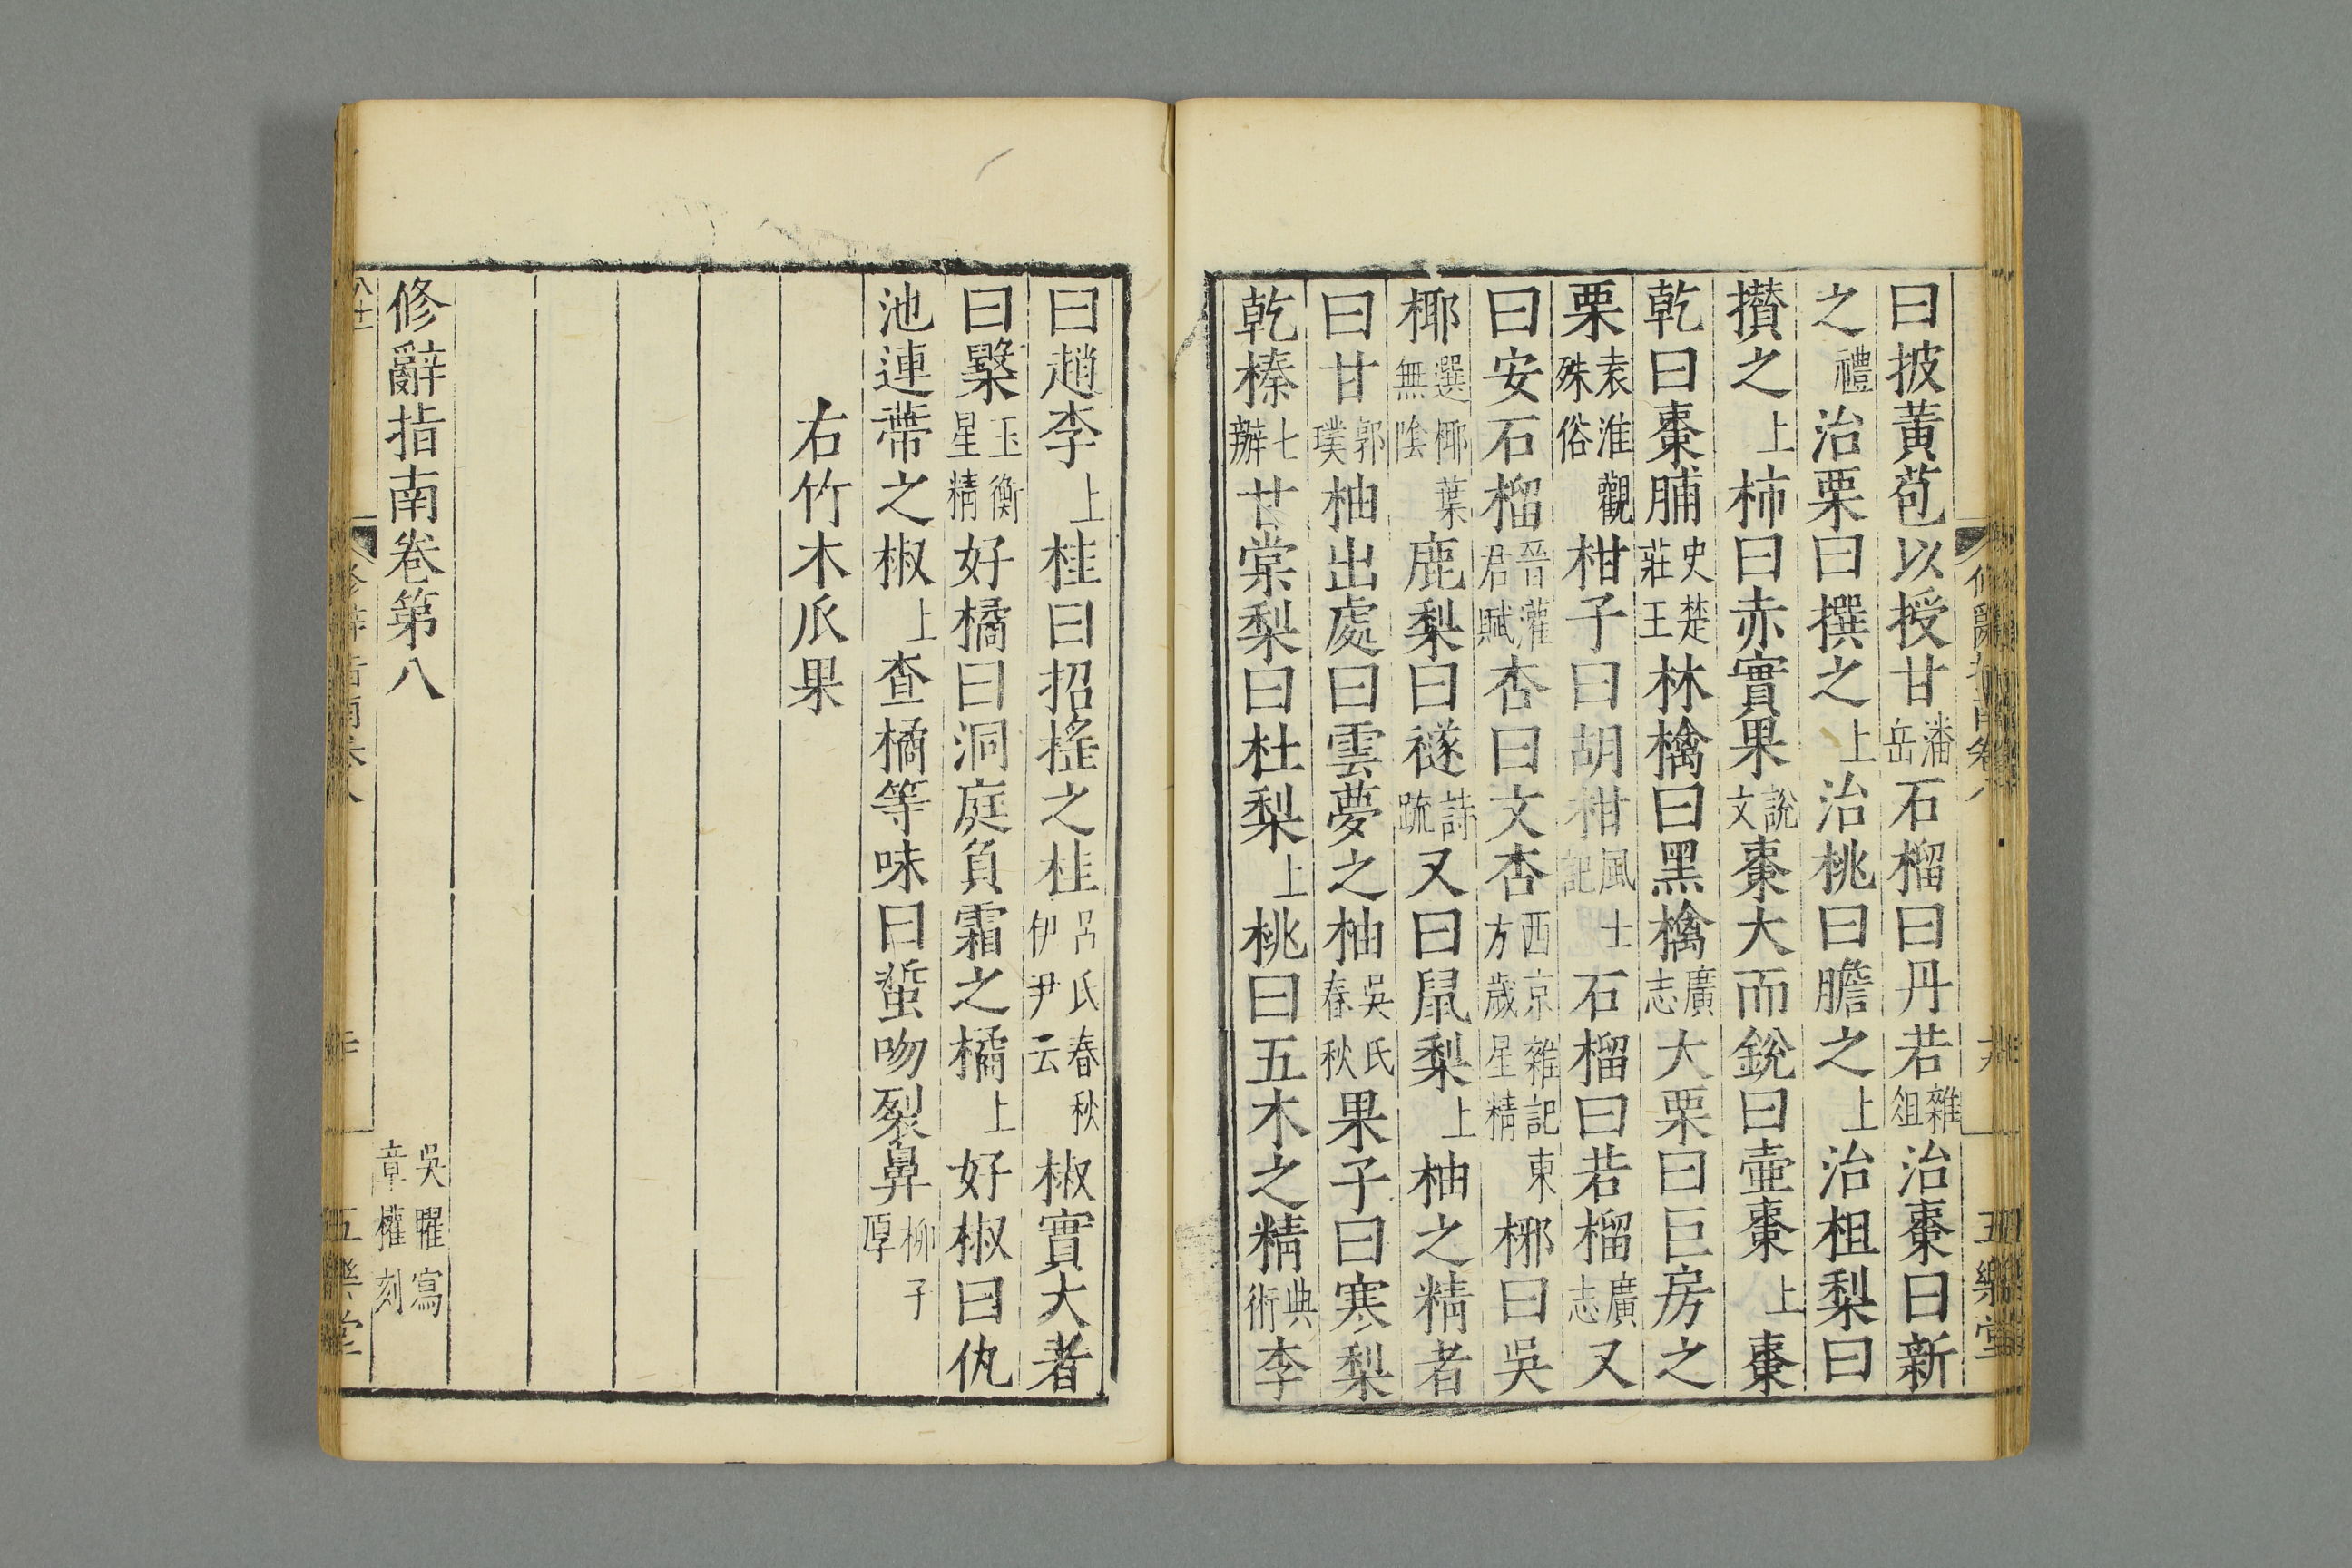 曰披黃苞以授甘潘岳石榴曰丹若雜俎治棗曰新
之禮治栗曰撰之上治桃曰膽之上治柤梨曰
攢之上柿曰赤實果說文棗大而銳曰壺棗上棗
乾曰棗脯史楚莊王林檎曰黑檎廣志大栗曰巨房之
栗袁淮觀殊俗柑子曰胡柑風土記石榴曰若榴廣志又
曰安石榴晉灌君賦杏曰文杏西京雜記東方歲星精梛曰吳
椰選椰葉無陰鹿梨曰檖詩疏又曰鼠梨上柚之精者
曰甘郭璞柚出處曰雲夢之柚吳氏春秋果子曰寒梨
乾榛七辦甘棠梨曰杜梨上桃曰五木之精典術李
修辭指南卷八
五樂堂
曰趙李上桂曰招搖之桂呂氏春秋伊尹云椒實大者
曰檕玉衡星精好橘曰洞庭負霜之橘上好椒曰仇
池連蔕之椒上查橘等味曰蜇吻裂鼻柳子厚
右竹木瓜果
修辭指南卷第八
吳曜寫
章權刻